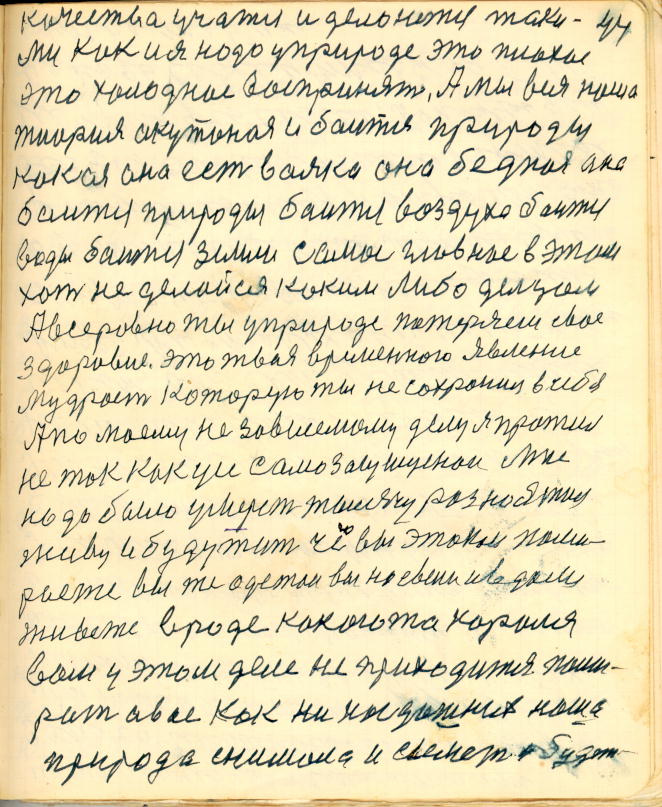 качества учати и делонети таки- 44
ми как и я надо уприроде это плохое
это холодное Воспринят, А мы вся наша
тиория окутоная и баится природы
какая она ест всяка она бедная ана
баится природы баится воздуха баится
воды баится зимли самое главное в этом
хот не делайся каким либо делцом
А всеровно ты уприроде потеряеш свое
здоровие. это твая временного явление
мудрост Которую ты не сохронил в себя
А по моему не зависемому делу я протил
не так как уи само защищеной Мне
надо было умерет тысячу раз но я тоя
живу и буду жит чё вы этакои поми-
раете вы же одетои вы наевши и в доми
живете вроде какогота короля
вам у этом деле не приходится поми-
рат а вас как ни на наша
природа снимала и снемет и будет